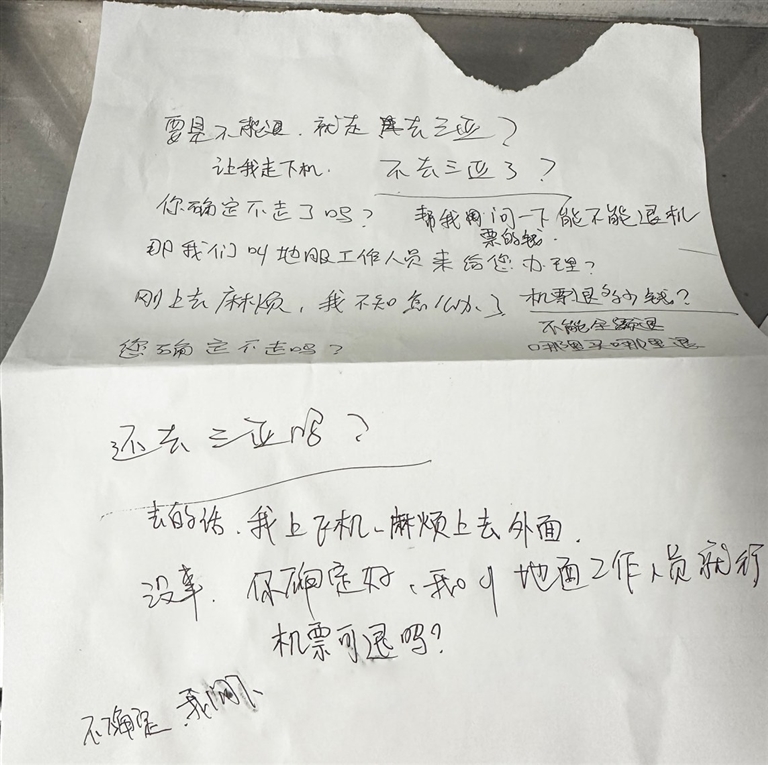 要是不能退.就走 去三亚？
让我走下机. 不去三亚了？
你确定不走了吗？ 帮我问一下能不能退机
票的钱.
那我们叫地服工作人员来给您办理？
刚上去麻烦，我不知怎么办了 机票退多少钱？
不能全额退
您确定不走吗？ 哪里买哪里退
还去三亚吗？
去的话、我上飞机、麻烦上去外面.
没事. 你确定好、我叫地面工作人员就行
机票可退吗？
不确定 我问下